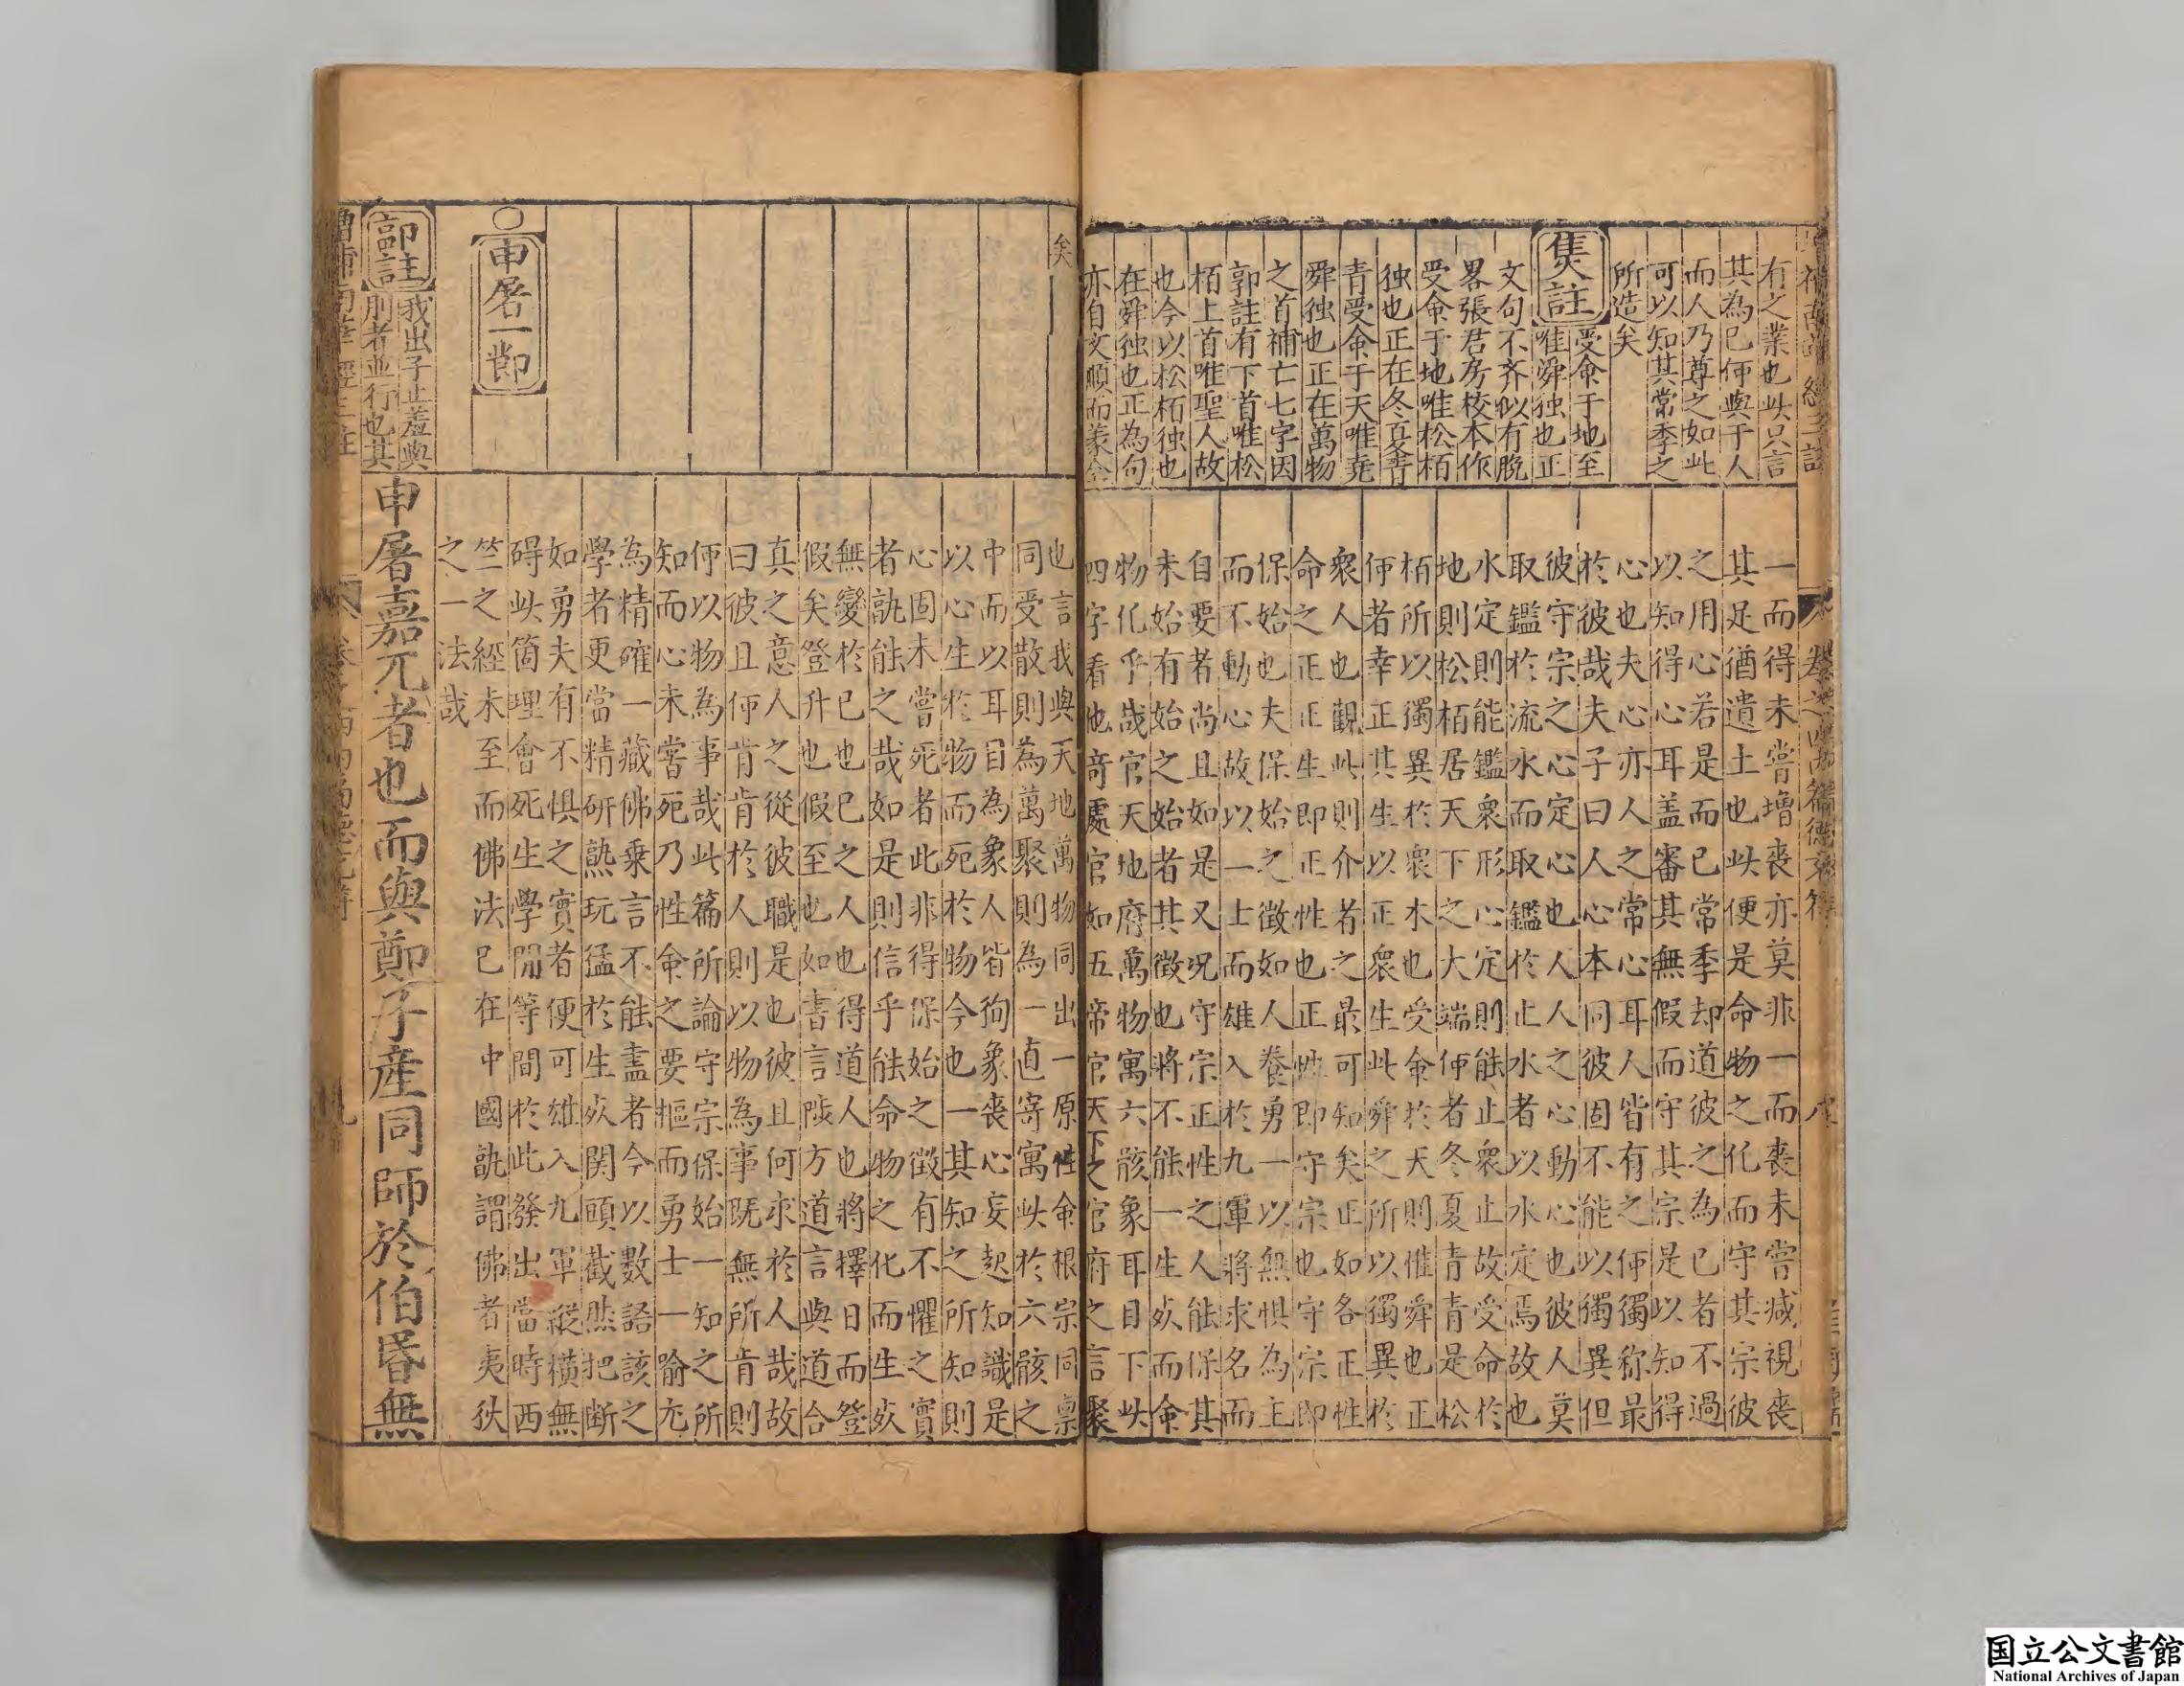 有之業也此只言
其為已何與于人
而人乃尊之如此
可以知其常季之
所造矣
集註
受命于地至
唯舜独也正
文句不齐似有脫
畧張君房校本作
受命于地唯松栢
独也正在冬夏青
青受命于天唯堯
舜独也正在萬物
之首補亡七字因
郭註有下首唯松
栢上首唯聖人故
也今以松栢独也
在舜独也正為句
亦自文順而義全
一而得未嘗增丧亦莫非一而丧未嘗减視丧
其是猶遺土也此便是命物之化而守其宗彼
之用心若是而已常季却道彼之為已者不過
以知得心耳盖審其無假而守其宗是以知得
心也夫心亦人之常心耳人皆有之何獨称最
於彼哉夫子曰人心本同彼固不能以獨異但
彼守宗之心定心也人人之心動心也彼人莫
取鑑於流水而取鑑於止水者以水定焉故也
水定則能鑑衆形心定則能止衆止故受命於
地則松栢居天下之大端何者冬夏青青是松
栢所以獨異於衆木也受命於天則惟舜也正
何者幸正其生以正衆生此舜之所以獨異於
衆人也觀此則介者之最可知矣正如各正性
命之正正生即正性也正性即守宗也守宗即
保始也夫保始之徵如人養勇一以無惧為主
而不動心故以一士而雄入於九軍將求名而
自要者尚且如是又况守宗正性之人能保其
未始有始之始者其徵也將不能一生死而命
物化乎哉官天地府萬物寓六骸象耳目下此
四字看他奇處官如五帝官天下之官府之言聚
矣
也言我與天地萬物同出一原性命根宗同禀
同受散則為萬聚則為一直寄寓此於六骸之
中而以耳目為象人皆狥象丧心妄起知識是
以心生於物而死於物今也一其知之所知則
心固未嘗死者此非得保始之徵有不懼之實
者孰能之哉如是則信乎能命物之化而生死
無變於已也已之人也得道人也將擇日而登
假矣登升也假至也如書言陟方道言與道合
真之意人之從彼職是也彼且何求於人哉故
曰彼且何肯肯於人則以物為事既無所肯則
何以物為事哉此篇所論守宗保始一知之所
知而心未嘗死乃性命之要樞而勇士一喻尤
為精確一藏佛乗言不能盡者今以數語該之
學者更當精研熟玩猛於生死関頭截然把断
如勇夫有不惧之實者便可雄入九軍縱横無
碍此箇理會死生學問等間於此發出當時西
竺之經未至而佛法已在中國孰謂佛者夷狄
之一法哉
○申屠一節
郭註
我出子止羞與
刖者並行也其
申屠嘉兀者也而與鄭子産同師於伯昬無
国立公文書館
National Archives of Japan